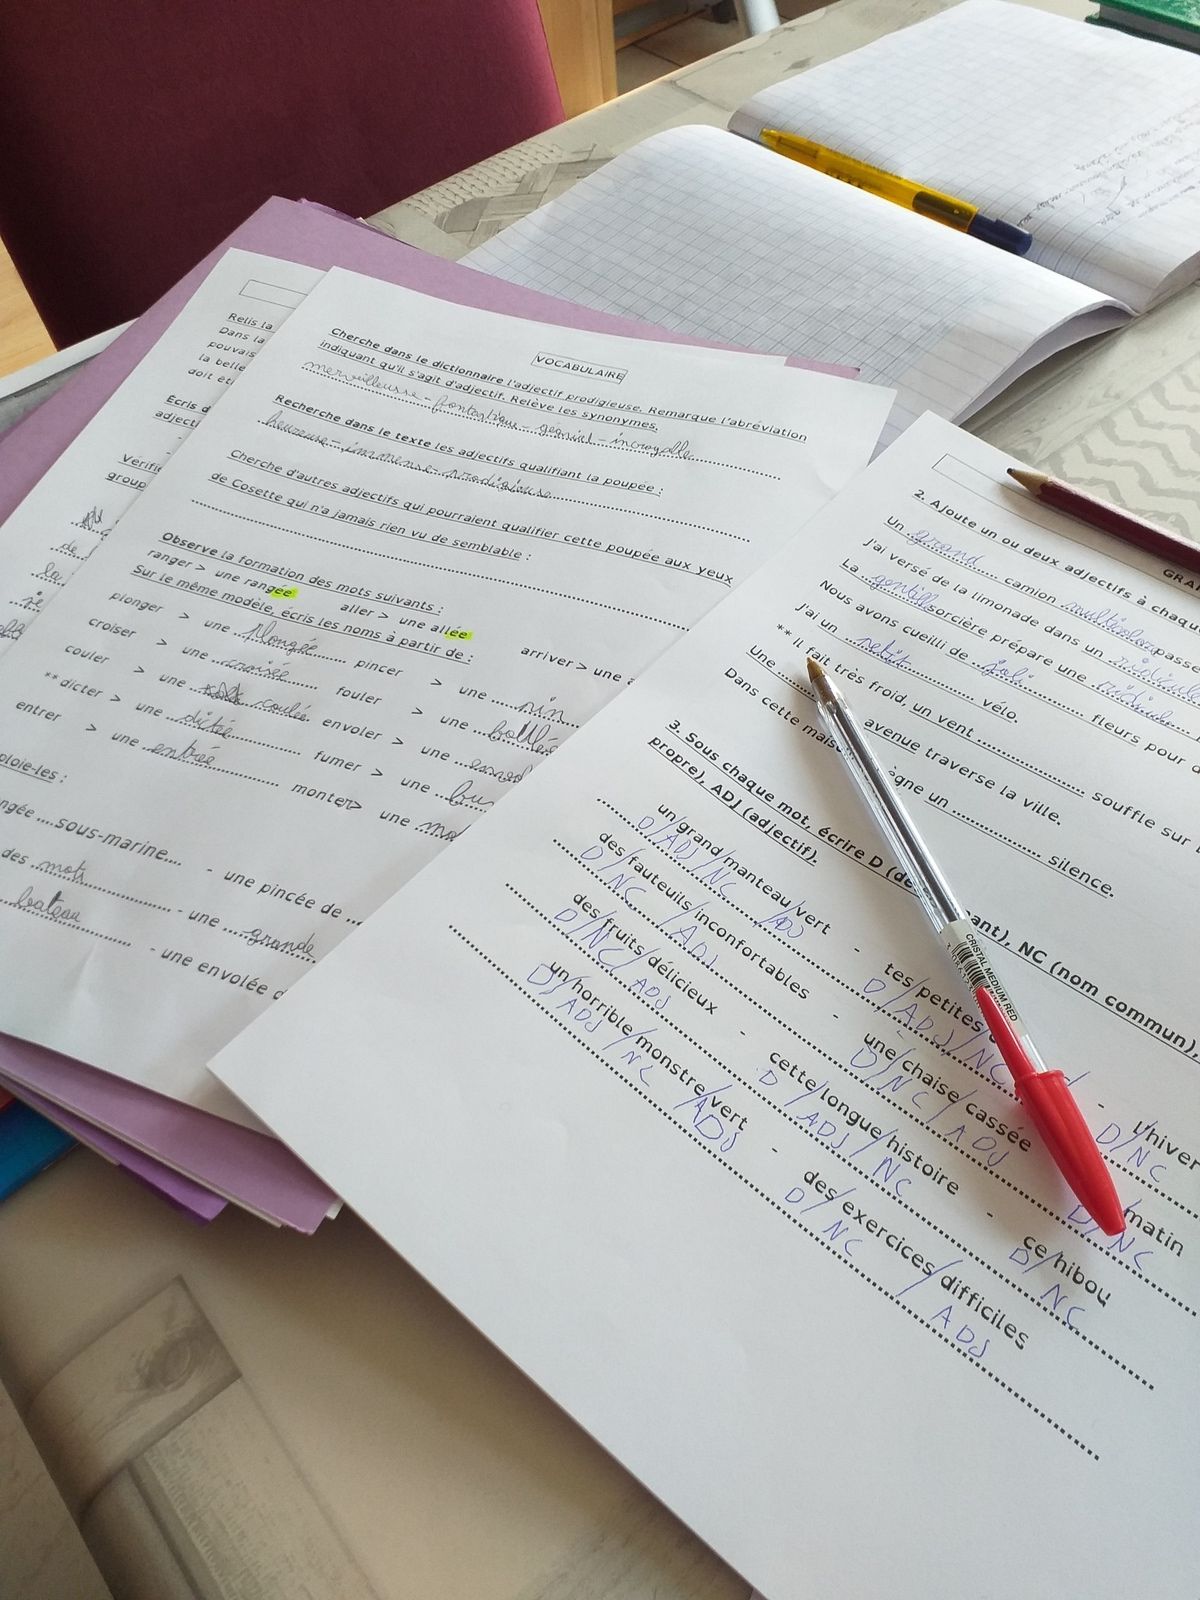 Relis la
Dans la
pouvais
la belle
doit êt
Écris d
adject
Vérifi
group
de
la
je
VOCABULAIRE
Cherche dans le dictionnaire l'adjectif prodigieuse. Remarque l'abréviation
indiquant qu'il s'agit d'adjectif. Relève les synonymes.
merveilleusse - fantastique - géniel - incroyable
Recherche dans le texte les adjectifs qualifiant la poupée :
heureuse - immense - prodigieuse
Cherche d'autres adjectifs qui pourraient qualifier cette poupée aux yeux
de Cosette qui n'a jamais rien vu de semblable :
Observe la formation des mots suivants :
ranger > une rangée aller > une allée arriver > une a
Sur le même modèle, écris les noms à partir de :
plonger > une plongée pincer > une pin
croiser > une croisée fouler > une
couler > une coulée envoler > une envol
**dicter > une dictée fumer > une
entrer > une entrée monter > une mo
ploie-les :
ngée ....sous-marine.... - une pincée de
des mots - une grande
bateau - une envolée d
GRA
2. Ajoute un ou deux adjectifs à chaque
Un grand camion multicolou passe
J'ai versé de la limonade dans un ridicule
La gentille sorcière prépare une
Nous avons cueilli de joli fleurs pour
J'ai un petit vélo.
** Il fait très froid, un vent souffle sur
Une avenue traverse la ville.
Dans cette mais ègne un silence.
3. Sous chaque mot, écrire D (dé ant), NC (nom commun),
propre), ADJ (adjectif).
un/grand/manteau/vert - tes/petites/ - l'hiver
D/ADJ/NC/ADJ D/ADJ/NC D/NC
des/fauteuils/inconfortables - une/chaise/cassée matin
D/NC/ADJ D/NC/ADJ D/NC
des/fruits/délicieux - cette/longue/histoire - ce/hibou
D/NC/ADJ D/ADJ/NC D/NC
un/horrible/monstre/vert - des/exercices/difficiles
D/ADJ/NC/ADJ D/NC/ADJ
CRISTAL MEDIUM RED